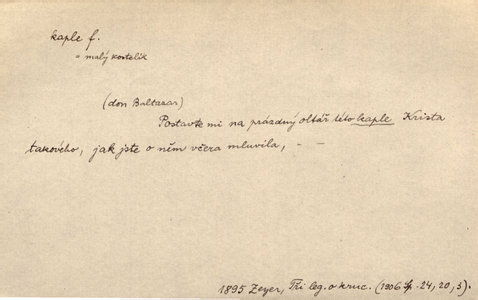 kaple f.
= malý kostelík
(don Baltazar)
Postavte mi na prázdný oltář této kaple Krista
takového, jak jste o něm včera mluvila, – –
1895 Zeyer, Tři leg. o kruc. (1906 24, 20, 5).